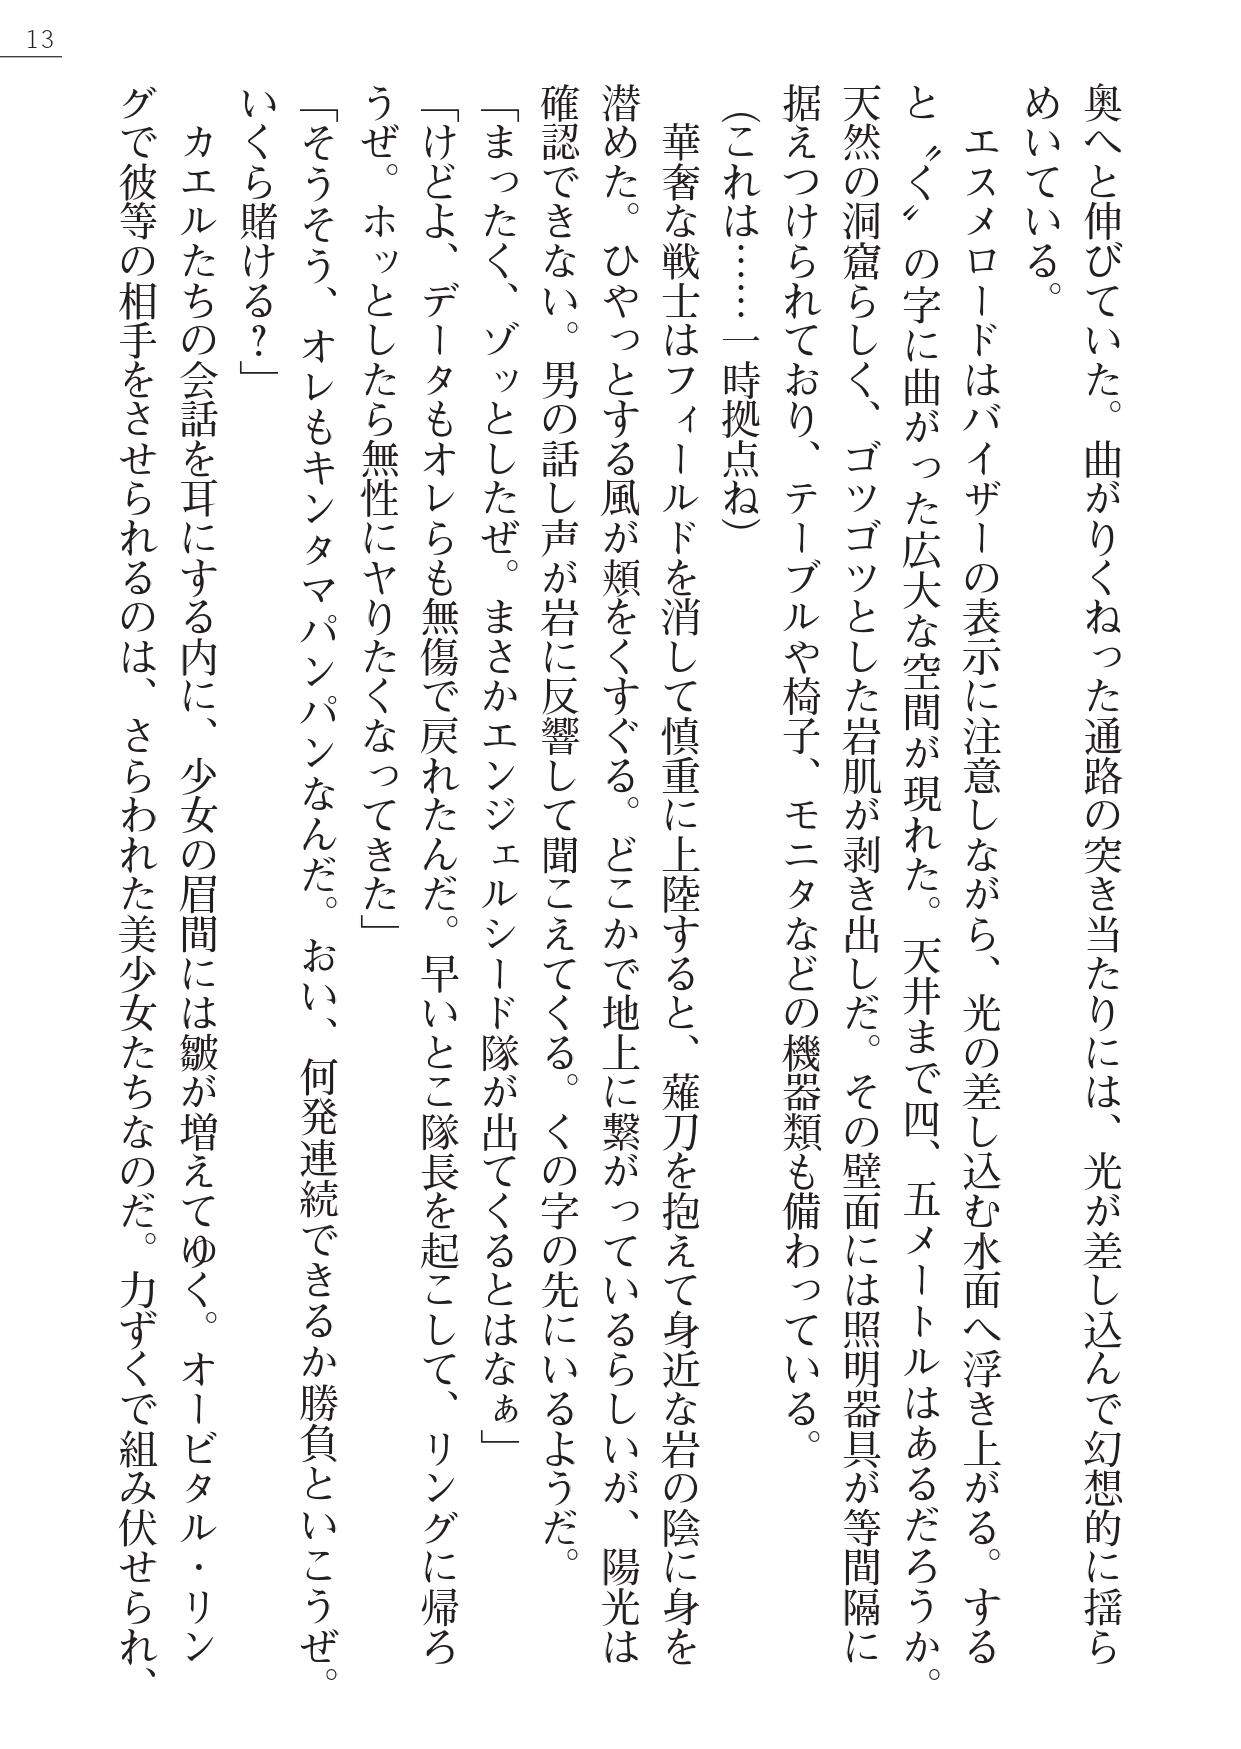 13
奥へと伸びていた。曲がりくねった通路の突き当たりには、光が差し込んで幻想的に揺ら
めいている。
　エスメロードはバイザーの表示に注意しながら、光の差し込む水面へ浮き上がる。する
と〝く〟の字に曲がった広大な空間が現れた。天井まで四、五メートルはあるだろうか。
天然の洞窟らしく、ゴツゴツとした岩肌が剥き出しだ。その壁面には照明器具が等間隔に
据えつけられており、テーブルや椅子、モニタなどの機器類も備わっている。
（これは……一時拠点ね）
　華奢な戦士はフィールドを消して慎重に上陸すると、薙刀を抱えて身近な岩の陰に身を
潜めた。ひやっとする風が頬をくすぐる。どこかで地上に繋がっているらしいが、陽光は
確認できない。男の話し声が岩に反響して聞こえてくる。くの字の先にいるようだ。
「まったく、ゾッとしたぜ。まさかエンジェルシード隊が出てくるとはなぁ」
「けどよ、データもオレらも無傷で戻れたんだ。早いとこ隊長を起こして、リングに帰ろ
うぜ。ホッとしたら無性にヤりたくなってきた」
「そうそう、オレもキンタマパンパンなんだ。おい、何発連続できるか勝負といこうぜ。
いくら賭ける？」
　カエルたちの会話を耳にする内に、少女の眉間には皺が増えてゆく。オービタル・リン
グで彼等の相手をさせられるのは、さらわれた美少女たちなのだ。力ずくで組み伏せられ、